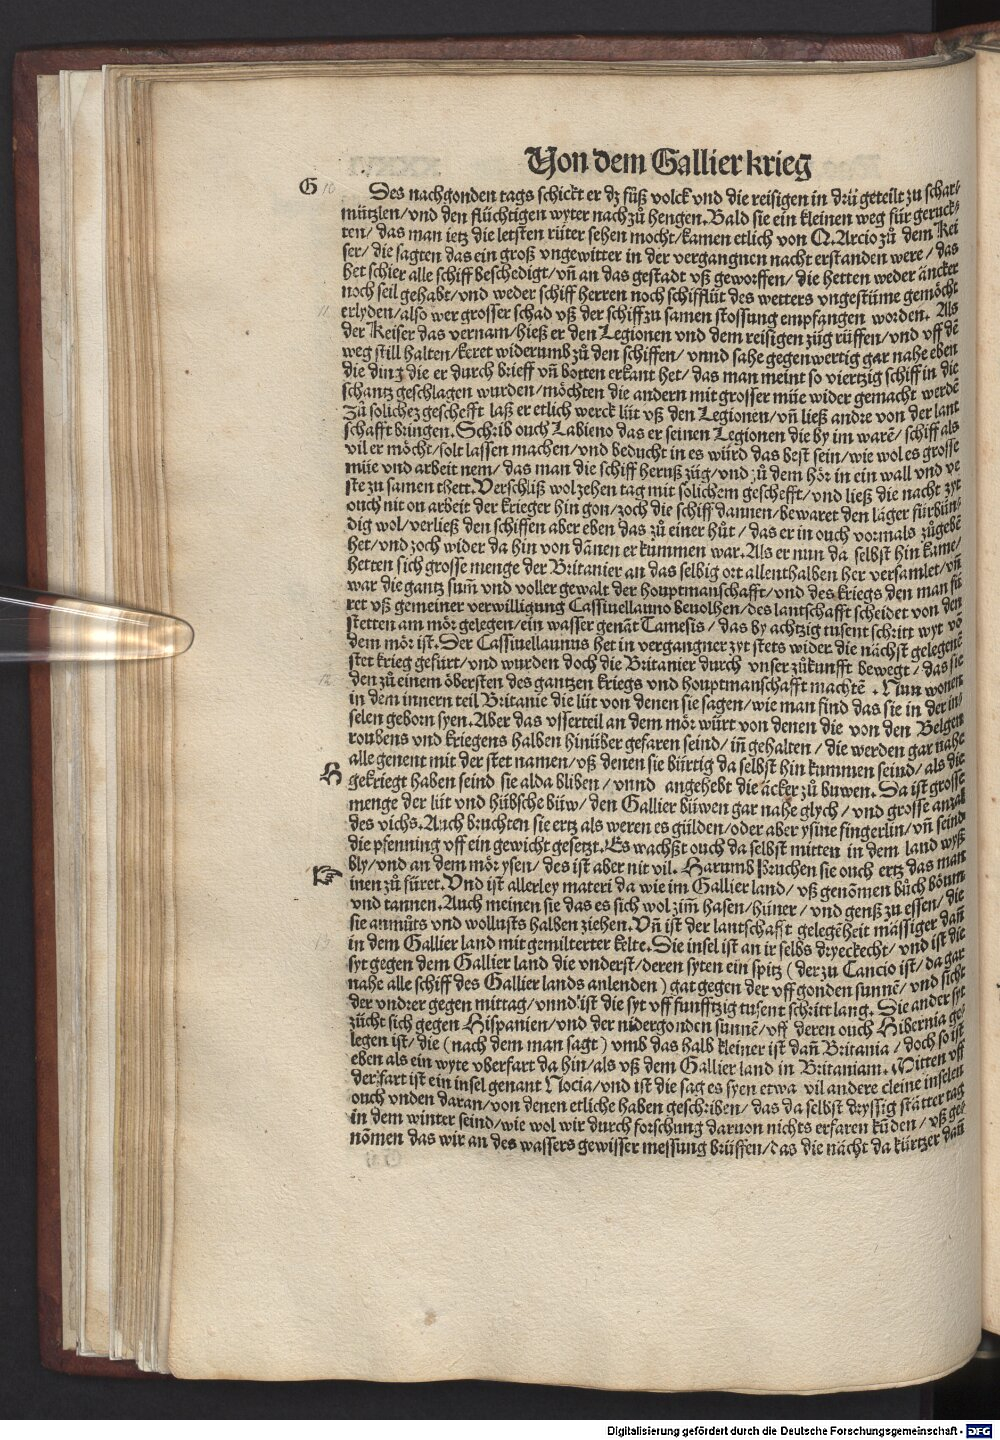 Von dem Gallier krieg
G 10 Des nachgonden tags schickt er dz fůß volck vnd die reisigen in drü geteilt zu schar-
mützlen/vnd den flüchtigen wyter nach zů hengen. Bald sie ein kleinen weg für geruck-
ten/ das man ietz die letsten rüter sehen mocht/kamen etlich von Q. Arcio zů dem Kei
ser/ die sagten das ein groß vngewitter in der vergangnen nacht erstanden were/ das
het schier alle schiff beschedigt/ vñ an das gestadt vß geworffen/ die hetten weder äncker
noch seil gehabt/vnd weder schiff herren noch schifflüt des wetters vngestüme gemöcht
11 erlyden/also wer grosser schad vß der schiff zu samen stossung empfangen worden. Als
der Keiser das vernam/hieß er den Legionen vnd dem reisigen züg rüffen/vnd vff dẽ
weg still halten/keret widerumb zů den schiffen/ vnnd sahe gegenwertig gar nahe eben
die ding die er durch brieff vñ botten erkant het/ das man meint so viertzig schiff in die
schantz geschlagen wurden/möchten die andern mit grosser müe wider gemacht werdẽ
Zů solichez geschefft laß er etlich werck lüt vß den Legionen/vñ ließ andre von der lant
schafft bringen. Schrib ouch Labieno das er seinen Legionen die by im warẽ/ schiff als
vil er möcht/solt lassen machen/vnd beducht in es würd das best sein/wie wol es grosse
müe vnd arbeit nem/ das man die schiff heruß züg/vnd zů dem hör in ein wall vnd ve
ste zu samen thett. Verschliß wol zehen tag mit solichem geschefft/vnd ließ die nacht zyt
ouch nit on arbeit der krieger hin gon/zoch die schiff dannen/bewaret den läger fürbün-
dig wol/verließ den schiffen aber eben das zů einer hůt/ das er in ouch vormals zůgebẽ
het/vnd zoch wider da hin von dãnen er kummen war. Als er nun da selbst hin kame/
hetten sich grosse menge der Britanier an das selbig ort allenthalben her versamlet/vñ
war die gantz sum̃ vnd voller gewalt der houptmanschafft/vnd des kriegs den man fü
ret vß gemeiner verwilligung Cassiuellauno beuolhen/des lantschafft scheidet von den
stetten am mör gelegen/ein wasser genãt Tamesis/ das by achtzig tusent schritt wyt võ
dem mör ist. Der Cassiuellaunus het in vergangner zyt stets wider die nächst gelegenẽ
stet krieg gefürt/vnd wurden doch die Britanier durch vnser zůkunfft bewegt/ das sie
12 den zů einem öbersten des gantzen kriegs vnd houptmanschafft machtẽ. Nun wonen
in dem innern teil Britanie die lüt von denen sie sagen/wie man find das sie in der in/
selen geborn syen. Aber das vsserteil an dem mör würt von denen die von den Belgen
roubens vnd kriegens halben hinüber gefaren seind/ iñ gehalten/ die werden gar nahe
alle genent mit der stet namen/vß denen sie bürtig da selbst hin kummen seind/als die
H gekriegt haben seind sie alda bliben/ vnnd angehebt die äcker zů buwen. Da ist grosse
menge der lüt vnd hübsche büw/ den Gallier büwen gar nahe glych/ vnd grosse anzal
des vichs. Auch bruchten sie ertz als weren es gülden/oder aber ysine fingerlin/vñ seind
die pfenning vff ein gewicht gesetzt. Es wachßt ouch da selbst mitten in dem land wyß
bly/vnd an dem mör ysen/ des ist aber nit vil. Harumb bruchen sie ouch ertz das man
inen zů füret. Vnd ist allerley materi da wie im Gallier land/ vß genõmen bůch böum
vnd tannen. Auch meinen sie das es sich wol zim̃ hasen/hüner/ vnd genß zu essen/ die
sie anmůts vnd wollusts halben ziehen. Vñ ist der lantschafft gelegẽheit mässiger dañ
13 in dem Gallier land mit gemilterter kelte. Die insel ist an ir selbs dryeckecht/ vnd ist die
syt gegen dem Gallier land die vnderst/deren syten ein spitz (der zu Cancio ist/ da gar
nahe alle schiff des Gallier lands anlenden) gat gegen der vff gonden sunnẽ/ vnd sicht
der vndrer gegen mittag/vnnd ist die syt vff funfftzig tusent schritt lang. Die ander syt
zücht sich gegen Hispanien/vnd der nidergonden sunnẽ/vff deren ouch Hibernia ge-
legen ist/ die (nach dem man sagt) vmb das halb kleiner ist dañ Britania/ doch so ist
eben als ein wyte vberfart da hin/als vß dem Gallier land in Britaniam. Mitten vff
der fart ist ein insel genant Nocia/vnd ist die sag es syen etwa vil andere cleine inselen
ouch vnden daran/von denen etliche haben geschriben/ das da selbst dryssig stätter tag
in dem winter seind/wie wol wir durch forschung daruon nichts erfaren kũden/ vß ge-
nõmen das wir an des wassers gewisser messung brüffen/das die nächt da kürtzer dañ
Digitalisierung gefördert durch die Deutsche Forschungsgemeinschaft - DFG